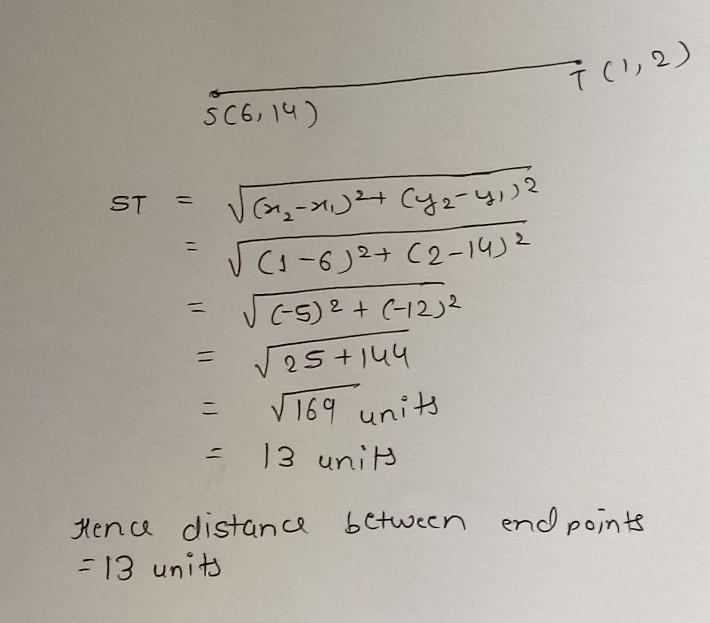 T (1, 2)
S(6, 14)
ST = √(x₂-x₁)²+ (y₂-y₁)²
= √(1-6)²+ (2-14)²
= √(-5)² + (-12)²
= √25+144
= √169 units
= 13 units
Hence distance between endpoints
= 13 units